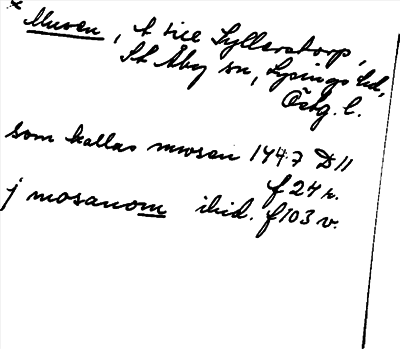 * Musen, t hie Sylleretorp,
St Åby sn, Lysings hd,
Östg. l.
som kallas mwsen 1447 D 11
f 24 r.
j mosanom ibid. f 103 v.